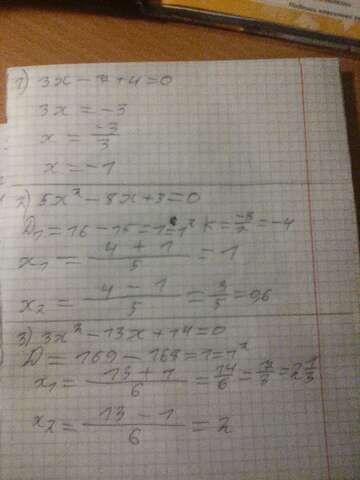 1) 3x - 7 + 4 = 0
3x = -3
x = -3/3
x = -1
2) 5x² - 8x + 3 = 0
D₁ = 16 - 15 = 1 = 1² k = -8/2 = -4
x₁ = (4 + 1)/5 = 1
x₂ = (4 - 1)/5 = 3/5 = 0,6
3) 3x² - 13x + 14 = 0
D = 169 - 168 = 1 = 1²
x₁ = (13 + 1)/6 = 14/6 = 7/3 = 2 1/3
x₂ = (13 - 1)/6 = 2